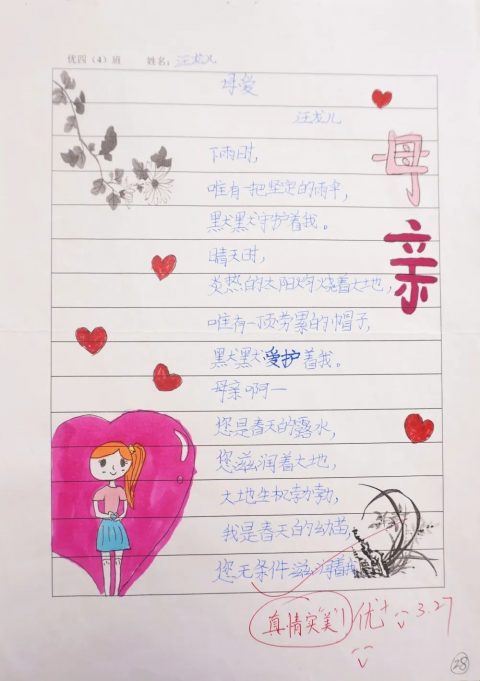 优四（4）班 姓名：汪龙儿
母爱
汪龙儿
母亲
下雨时，
唯有一把坚定的雨伞，
默默守护着我。
晴天时，
炎热的太阳灼烧着大地，
唯有一顶劳累的帽子，
默默爱护着我。
母亲啊—
您是春天的露水，
您滋润着大地，
大地生机勃勃，
我是春天的幼苗，
您无条件滋润着我
真情实"美"！优+ 3.27
28